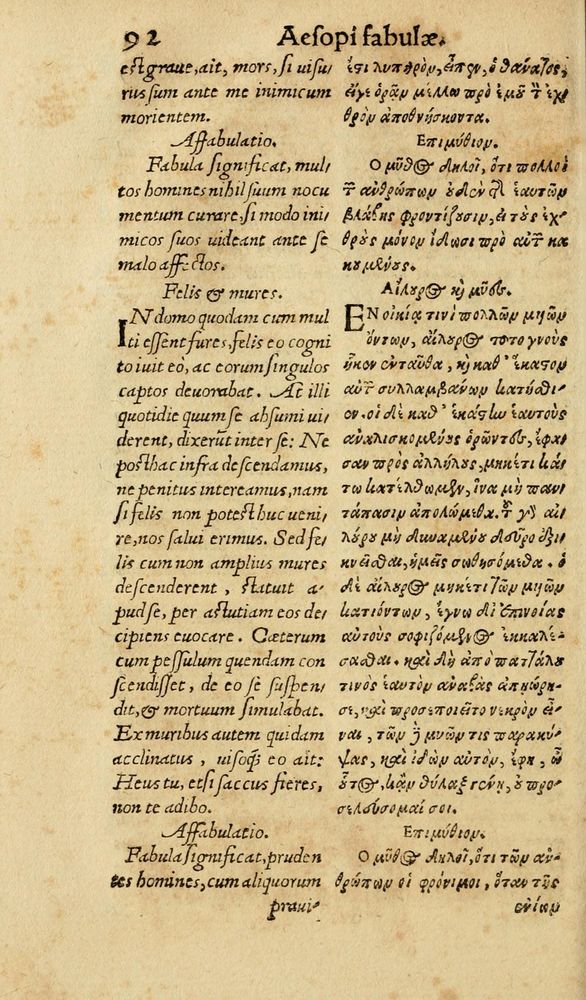 92 Aesopi fabulæ.
est graue, ait, mors, si uisu/
rus sum ante me inimicum
morientem.
Affabulatio.
Fabula significat, mul/
tos homines nihil suum nocu
mentum curare, si modo ini/
micos suos uideant ante se
malo affectos.
Felis & mures.
IN domo quodam cum mul
ti essent fures, felis eo cogni
to iuit eo, ac eorum singulos
captos deuorabat. At illi
quotidie quum se absumi ui/
derent, dixerũt inter se: Ne
posthac infra descendamus,
ne penitus intereamus, nam
si felis non potest huc ueni/
re, nos salui erimus. Sed fe/
lis cum non amplius mures
descenderent, statuit a/
pud se, per astutiam eos de/
cipiens euocare. Cæterum
cum pessulum quendam con
scendisset, de eo se suspen/
dit, & mortuum simulabat.
Ex muribus autem quidam
acclinatus, uisoq́; eo ait:
Heus tu, etsi saccus fieres,
non te adibo.
Affabulatio.
Fabula significat, pruden
tes homines, cum aliquorum
praui/
ἐστὶ λυπηρὸν, εἶπεν, ὁ θάνατος,
εἴγε ὁρᾷν μέλλω πρὸ ἐμοῦ τ̀ ἐχ
θρὸν ἀποθνήσκοντα.
Επιμύθιον.
Ο μῦθος δηλοῖ, ὅτι πολλοὶ
τ̃ ἀνθρώπων οὐδὲν τ̃ ἑαυτῶν
βλάβης φροντίζουσιν, ἐὰν τοὺς ἐχ/
θροὺς μόνον ἴδωσι πρὸ αὐτ̃ κα
κουμένους.
Αἴλουρος καὶ μῦες.
ΕΝ οἰκίᾳ τινὶ πολλῶν μυῶν
ὄντων, αἴλουρος τοῦτο γνοὺς
ἧκεν ἐνταῦθα, καὶ καθ' ἕκαστον
αὐτ̃ συλλαμβάνων κατήσθι/
εν. οἱ δὲ καθ' ἑκάστην ἑαυτοὺς
ἀναλισκομένους ὁρῶντες, ἔφα/
σαν πρὸς ἀλλήλους, μηκέτι κά/
τω κατέλθωμεν, ἵνα μὴ παν/
τάπασιν ἀπολώμεθα. τ̃ γὰρ αἰ
λούρου μὴ δυναμένου δεῦρο ἐξι/
κνεῖσθαι, ἡμεῖς σωθησόμεθα. ὁ
δὲ αἴλουρος μηκέτι τῶν μυῶν
κατιόντων, ἔγνω δι' ἐπινοίας
αὐτοὺς σοφιζόμενος ἐκκαλέ/
σασθαι. καὶ δὴ ἀπὸ πατζάλου
τινὸς ἑαυτὸν ἀναβὰς ἀπῃώρη/
σε, καὶ προσεποιεῖτο νεκρὸν εἶ/
ναι, τῶν δὲ μυῶν τις παρακύ/
ψας, καὶ ἰδὼν αὐτὸν, ἔφη, ὦ
οὗτος, κἂν θύλαξ γένῃ, οὐ προσ/
ελεύσομαί σοι.
Επιμύθιον.
Ο μῦθος δηλοῖ, ὅτι τῶν ἀν/
θρώπων οἱ φρόνιμοι, ὅταν τῆς
ἐνίων